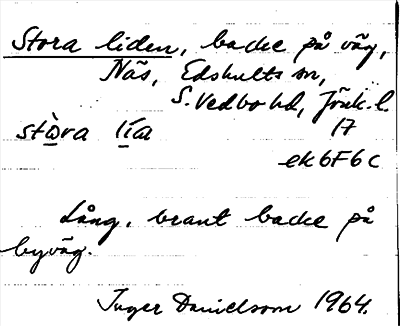 Stora liden, backe på väg,
Näs, Edshults sn,
S. Vedbo hd, Jönk. l.
stòra lía 17
ek 6F6c
Lång, brant backe på
byväg.
Inger Danielsson 1964.